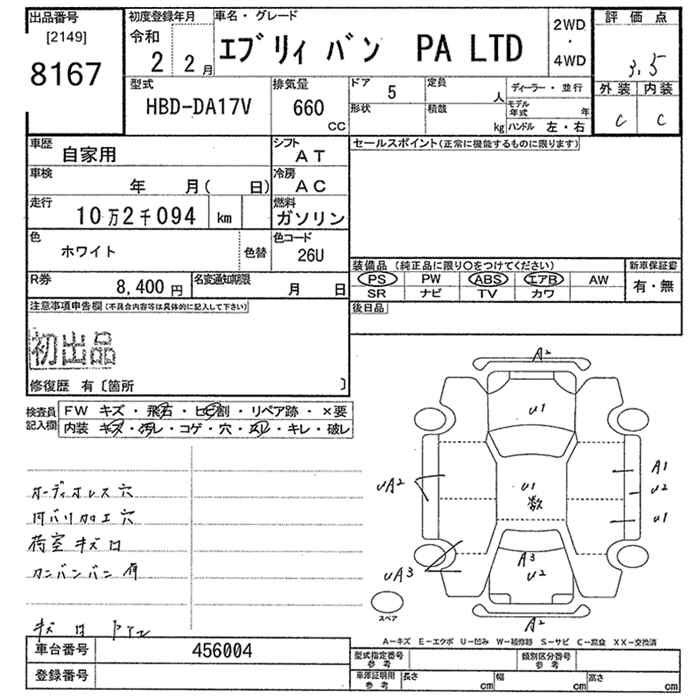 出品番号
[2149]
8167
初度登録年月
令和
2 2月
車名・グレード
エブリィ バン PA LTD
2WD
・
4WD
評価点
3.5
外装 内装
C C
型式
HBD-DA17V
排気量
660
CC
ドア 5
定員
人
形状
積載
kg
ディーラー・並行
モデル年式 年
ハンドル 左・右
車歴
自家用
シフト
AT
セールスポイント(正常に機能するものに限ります)
車検
年 月( 日)
冷房
AC
走行
10万2千094 km
燃料
ガソリン
色
ホワイト
色替
色コード
26U
装備品 (純正品に限り○をつけてください)
PS PW ABS エアB AW
SR ナビ TV カワ
新車保証書
有・無
R券
8,400円
名変通知期限
月 日
後日品
注意事項申告欄(不具合内容等は具体的に記入して下さい)
初出品
修復歴 有〔箇所 〕
検査員記入欄
FW キズ・飛石・ヒビ割・リペア跡・×要
内装 キズ・汚レ・コゲ・穴・スレ・キレ・破レ
オーディオレス 穴
内バリ加工穴
荷室キズ凹
カンバンバン有
キズ凹
A2
U1
UA2
U1
数
A1
U2
U1
UA3
A3
U2
A2
スペア
A－キズ E－エクボ U－凹み W－補修跡 S－サビ C－腐食 XX－交換済
車台番号
456004
登録番号
型式指定番号
参考
類別区分番号
参考
車庫証明用
参考
長さ cm
幅 cm
高さ cm